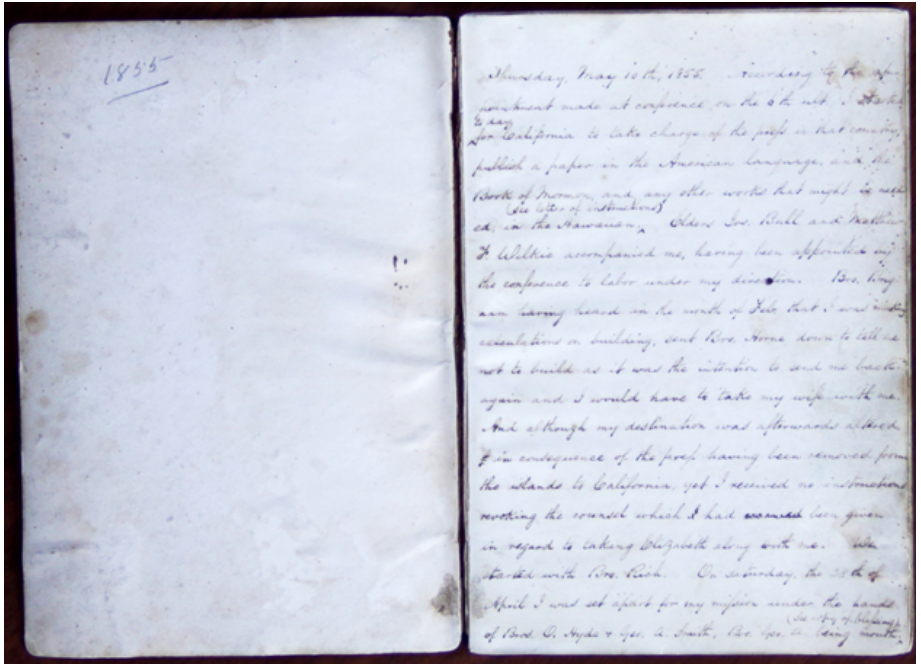 1855
Thursday, May 10th, 1855. According to the ap-
pointment made at conference on the 6th ult. I started
to day
for California to take charge of the press in that country,
publish a paper in the American language, and the
Book of Mormon, and any other works that might be need-
(See letter of instructions)
ed, in the Hawaiian. Elders Jos. Bull and Matthew
F Wilkie accompanied me, having been appointed by
the conference to labor under my direction. Bro. Brig-
ham having heard in the month of Feb. that I was making
calculations on building, sent Bro. Horne down to tell me
not to build as it was the intention to send me back
again and I would have to take my wife with me.
And although my destination was afterwards altered
in consequence of the press having been removed from
the islands to California, yet I received no instructions
revoking the counsel which I had been given
in regard to taking Elizabeth along with me. We
started with Bro. Rich. On Saturday, the 28th of
April I was set apart for my mission under the hands
(See copy of blessing)
of Bros. O. Hyde & Geo. A. Smith, Bro. Geo. A. being mouth,